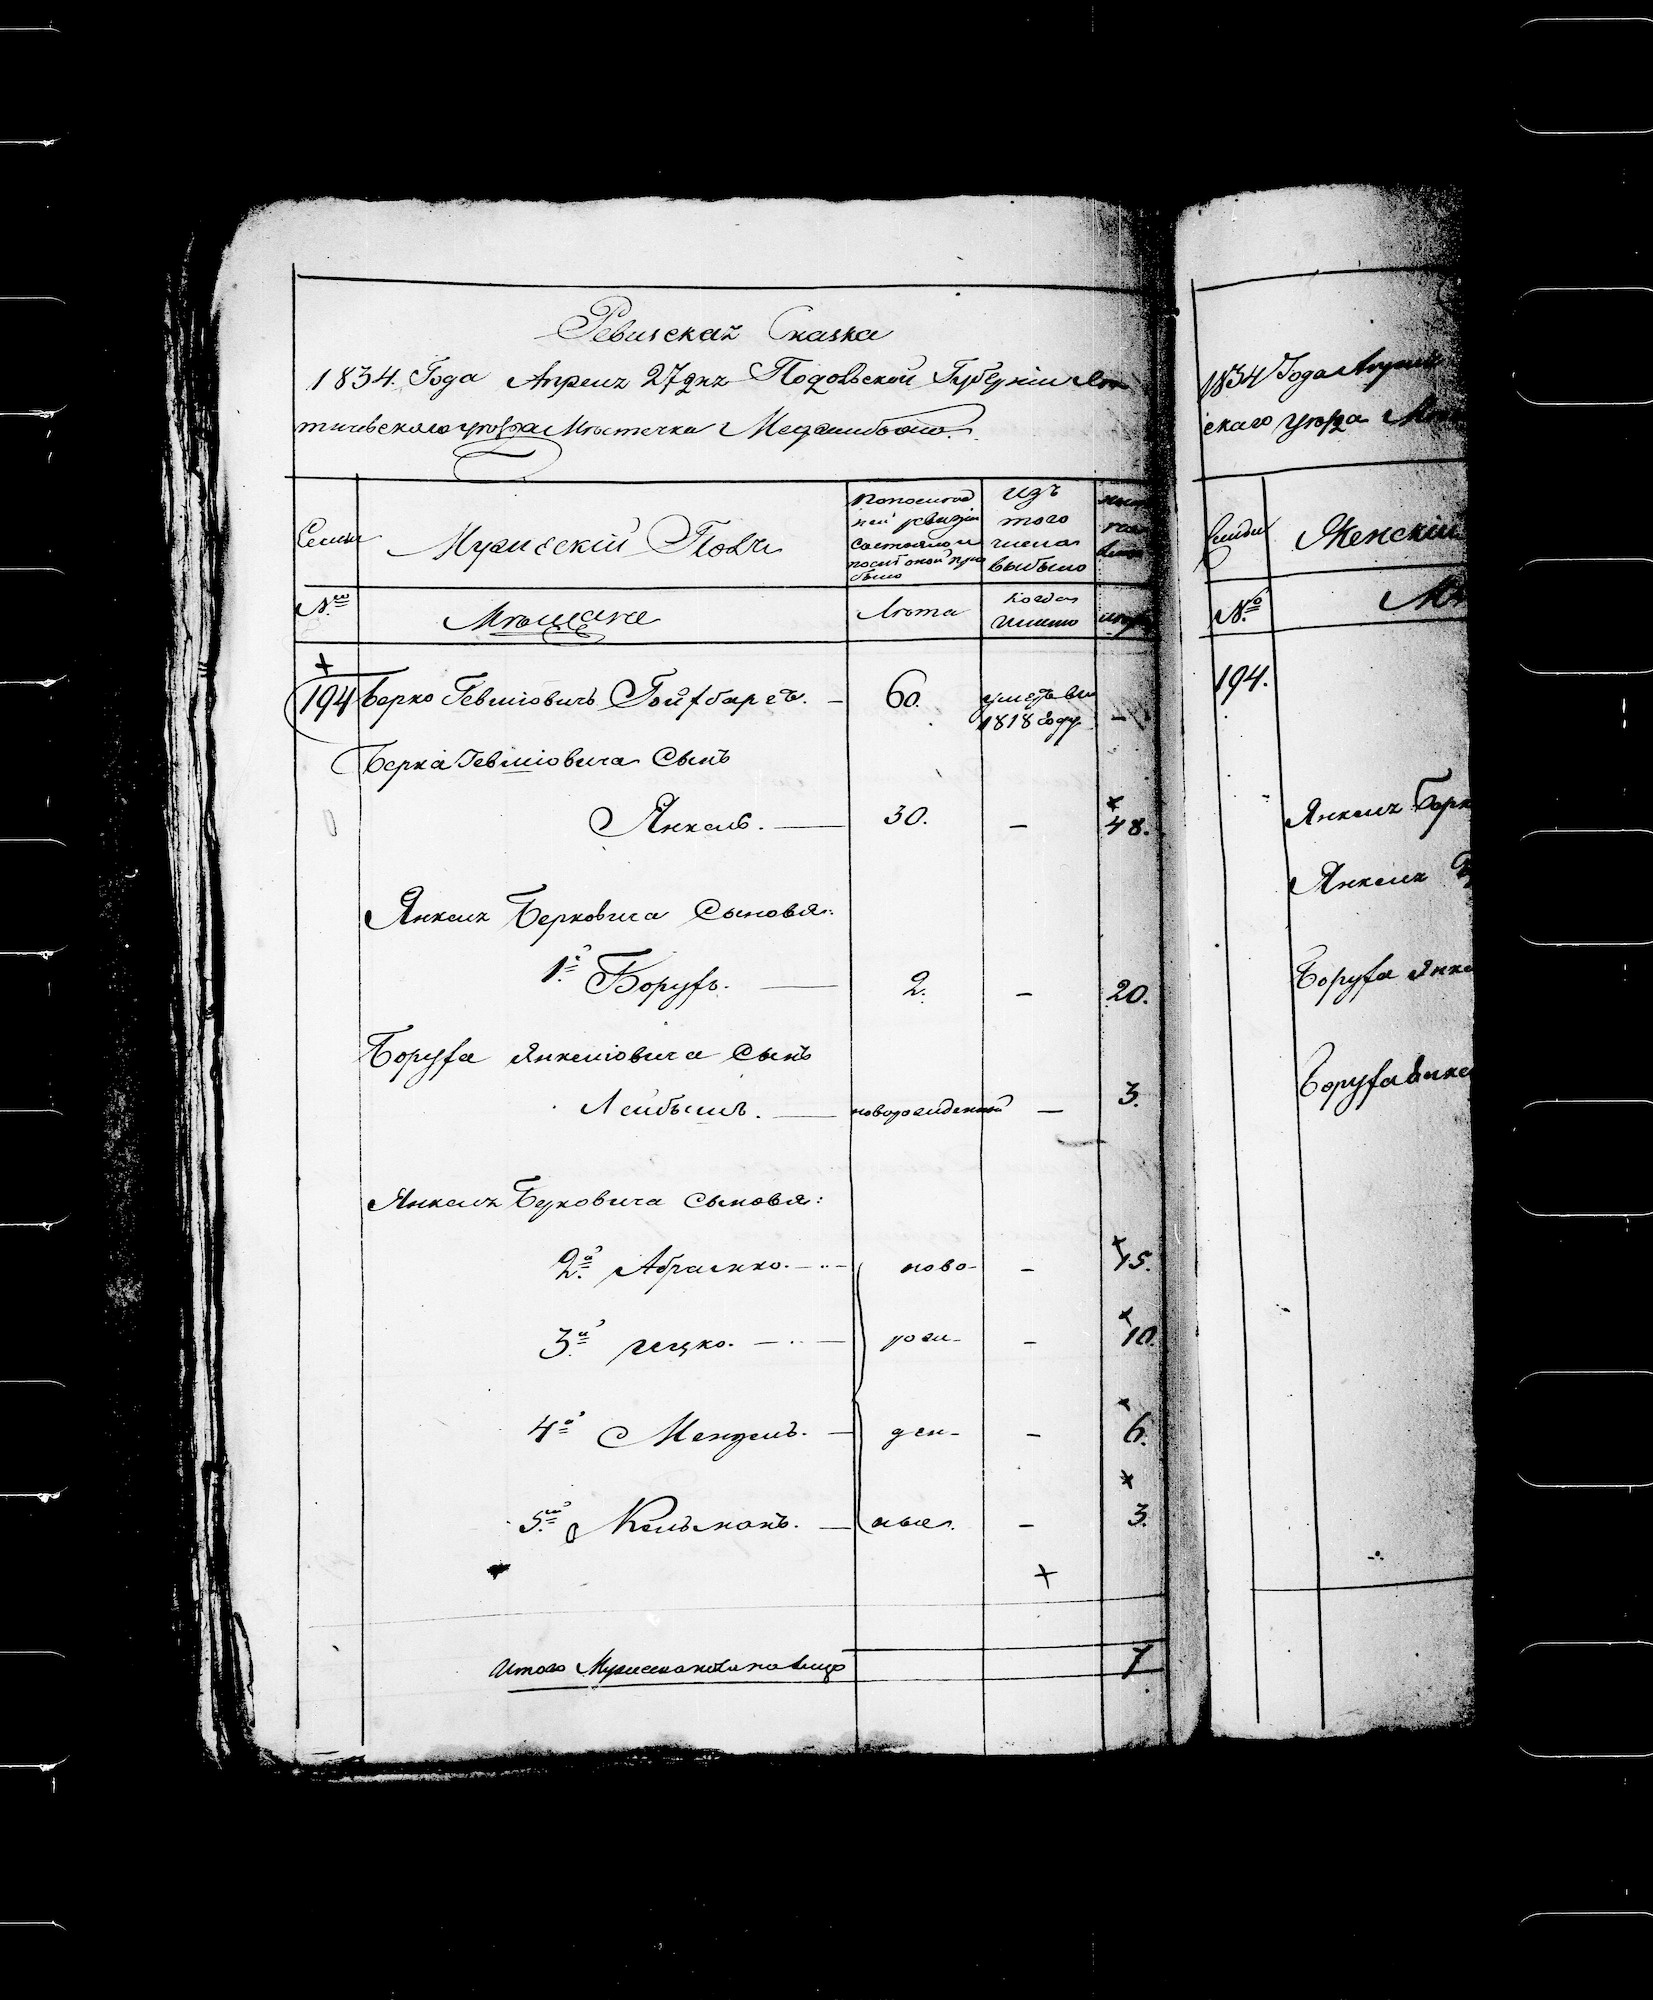 Ревизская Сказка
1834. Года Апреля 27 дня Подольской Губерніи Ле-
тичевского уезда Местечка Меджибожа.
Семьи
Мужескій Полъ
По последней ревизіи состояло и после оной прибыло
Изъ того числа выбыло
№
Мещане
Лета
Когда именно
194 Берко Гевшіовичъ Гойхбаргъ. — 60. умеръ въ 1818 году —
Берка Гевшіовича Сынъ
Янкель. — 30. — 48.
Янкеля Берковича Сыновья:
1й Борухъ. — 2. — 20.
Боруха Янкеліовича Сынъ
Лейбышъ. — новорожденный — 3.
Янкеля Берковича Сыновья:
2й Абрамко. — ново- — 15.
3й Гецко. — рож- — 10.
4й Мендель. — ден- — 6.
5й Кельманъ. — ные. — 3.
Итого Мужеска пола на лицо 7
1834 Года Апреля
скаго уезда
Семьи
Женскій
№
194.
Янкеля Берк
Янкеля
Боруха Янке
Боруха Янке